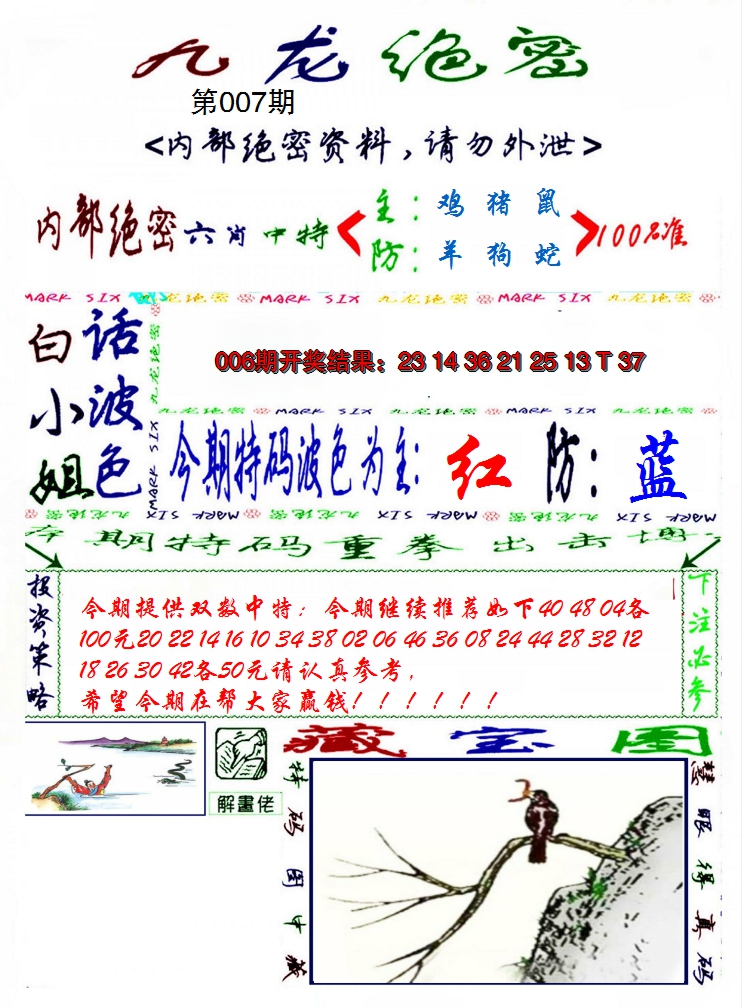 九龙绝密
第007期
<内部绝密资料，请勿外泄>
内部绝密六肖中特
主：鸡 猪 鼠
防：羊 狗 蛇
100%准
MARK SIX 九龙绝密 MARK SIX 九龙绝密 MARK SIX 九龙绝密
白小姐
话波色
九龙绝密 MARK SIX
006期开奖结果：23 14 36 21 25 13 T 37
九龙绝密 MARK SIX 九龙绝密 MARK SIX 九龙绝密
今期特码波色为主：红 防：蓝
九龙绝密 MARK SIX 九龙绝密 MARK SIX 九龙绝密 MARK SIX
本期特码重拳出击博
投资策略
今期提供双数中特：今期继续推荐如下40 48 04各
100元20 22 14 16 10 34 38 02 06 46 36 08 24 44 28 32 12
18 26 30 42各50元请认真参考，
希望今期在帮大家赢钱！！！！！！
下注必参
解畫佬
藏宝图
特码图中藏
慧眼得真码